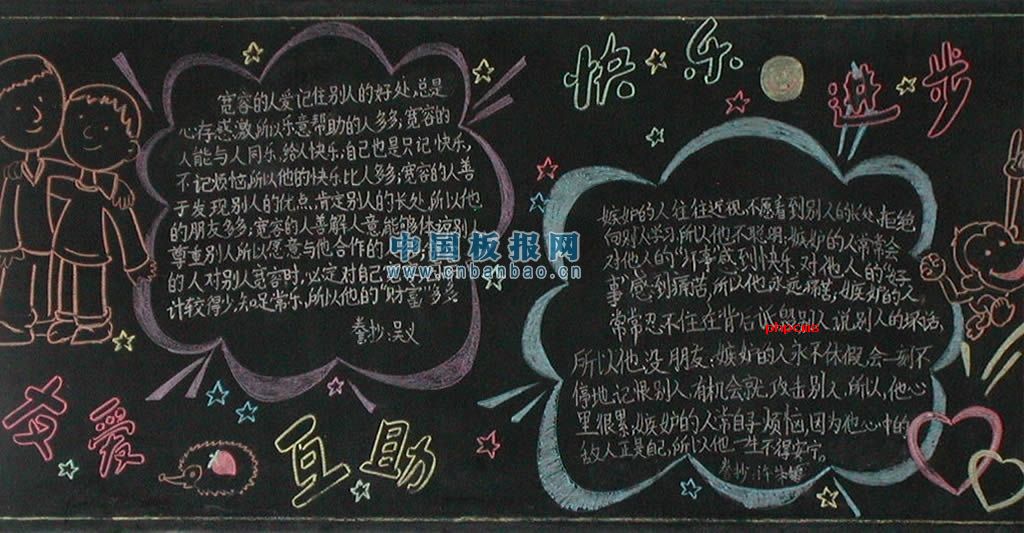 快乐进步
宽容的人爱记住别人的好处,总是
心存感激,所以乐意帮助的人多多;宽容的
人能与人同乐,给人快乐;自己也是只记快乐,
不记烦恼,所以他的快乐比人多;宽容的人善
于发现别人的优点,肯定别人的长处,所以他
的朋友多多;宽容的人善解人意,能够体谅别人,
尊重别人,所以愿意与他合作的
的人对别人宽容时,必定对自己
计较得少,知足常乐,所以他的"财富"多多。
秦抄:吴义
中国板报网
www.cnbanbao.cn
嫉妒的人往往近视,不愿看到别人的长处,拒绝
向别人学习,所以他不聪明;嫉妒的人常常会
对他人的"坏事"感到快乐,对他人的"好
事"感到痛苦,所以他永远痛苦;嫉妒的人
常常忍不住在背后 别人,说别人的坏话,
phpcms
所以他没朋友;嫉妒的人永不休假,会一刻不
停地记恨别人,有机会就攻击别人,所以,他心
里很累;嫉妒的人常自寻烦恼,因为他心中的
敌人正是自己,所以他一生不得安宁。
秦抄:许
友爱互助